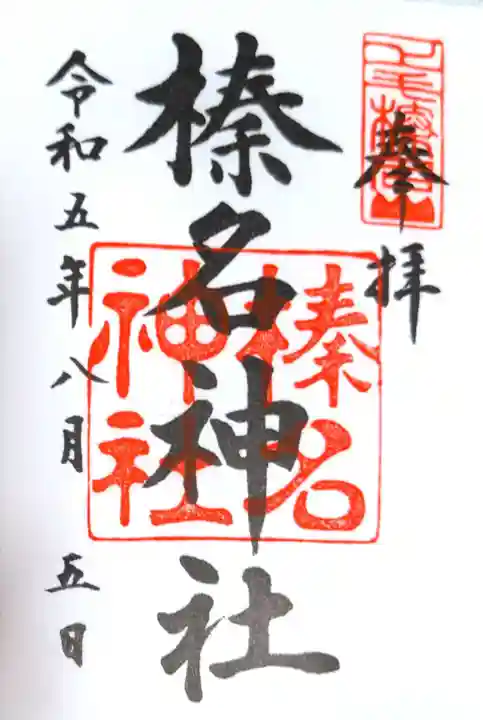 奉拝
榛名神社
榛名
神社
令和五年八月五日